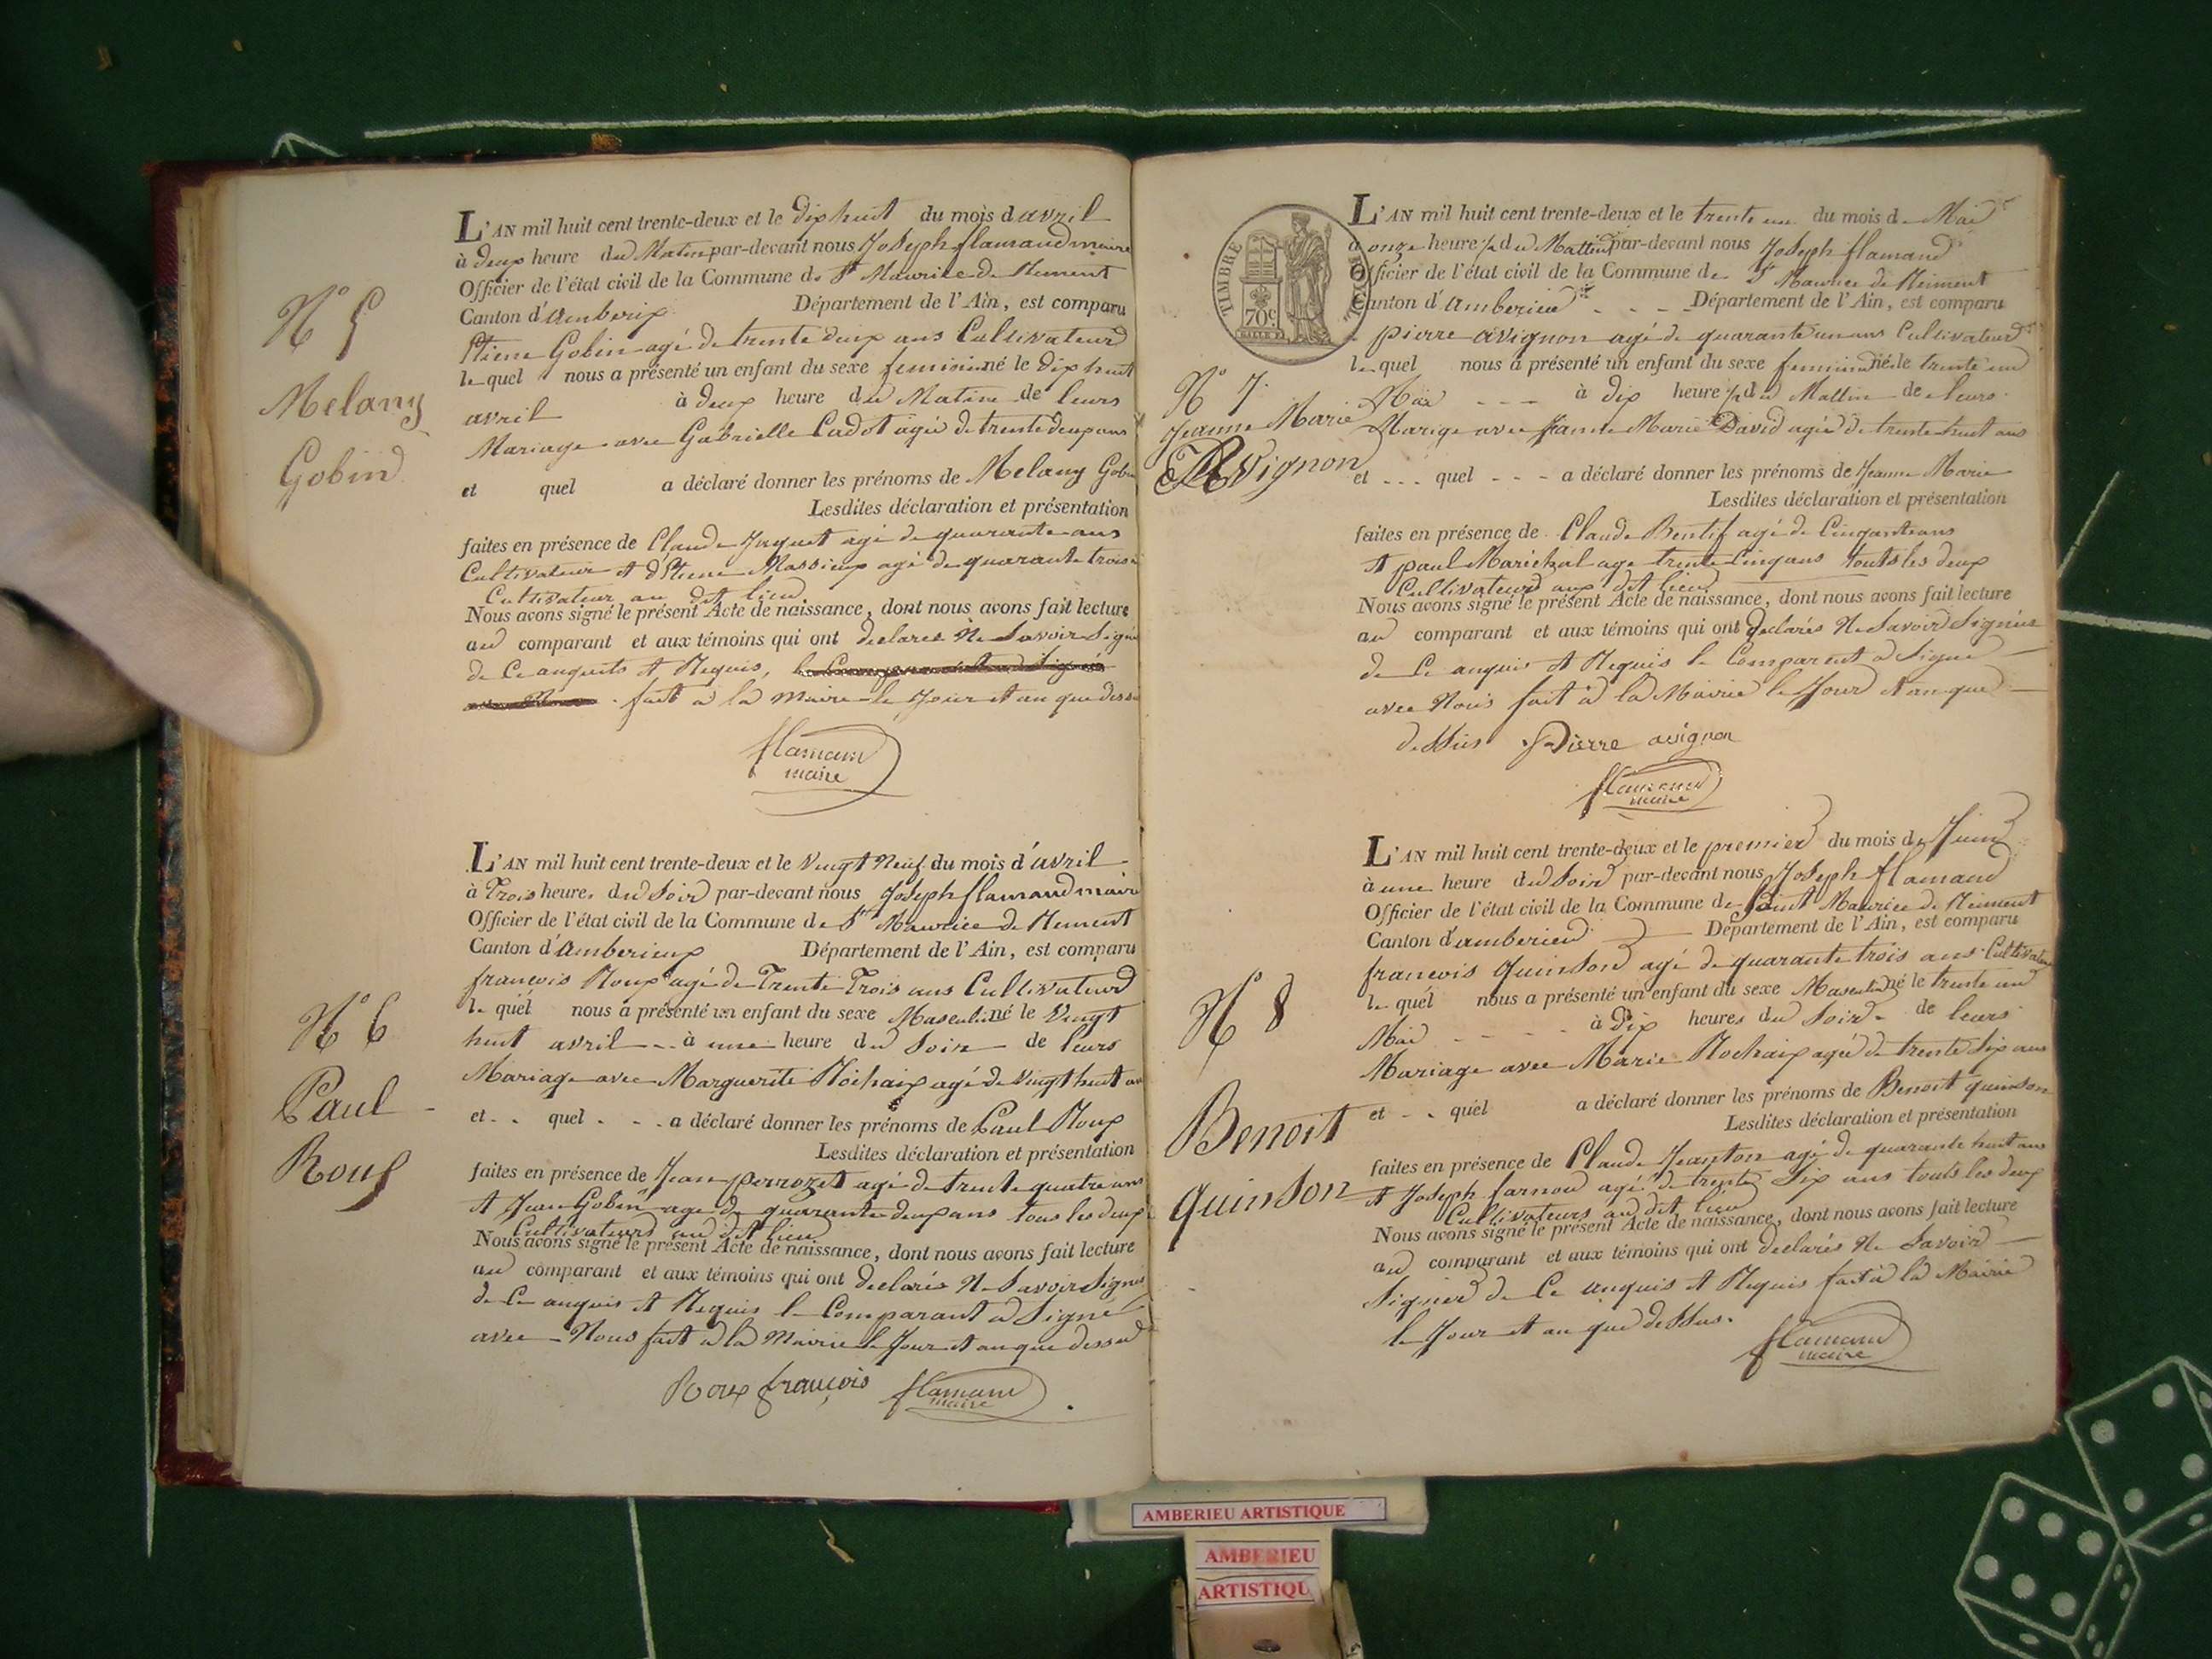 L'AN mil huit cent trente-deux et le dix huit du mois d avril
à deux heure du Matin par-devant nous Joseph flamand maire
Officier de l'état civil de la Commune de St Maurice de Rement
Canton d'amberix Département de l'Ain, est comparu
Etiene Gobin agé de trente deux ans Cultivateur
le quel nous a présenté un enfant du sexe feminin né le dix huit
avril à deux heure du Matin de leurs
Mariage avec Gabrielle Cadot agée de trente deux ans
et quel a déclaré donner les prénoms de Melany Gobin
Lesdites déclaration et présentation
faites en présence de Claude Juquet agé de quarante ans
Cultivateur et d'Etiene Massieux agé de quarante trois
Cultivateur au dit lieu
Nous avons signé le présent Acte de naissance, dont nous avons fait lecture
au comparant et aux témoins qui ont declarés Ne Savoir Signé
de Ce anquits et Requis,
fait à la maire le Jour et an que dessu
flamam
maire
N° 5
Melany
Gobin
L'AN mil huit cent trente-deux et le vingt Neuf du mois d'avril
à Trois heure, du Soir par-devant nous Joseph flamand maire
Officier de l'état civil de la Commune de St Maurice de Rement
Canton d'amberieux Département de l'Ain, est comparu
francois Roux agé de Trente Trois ans Cultivateur
le quel nous a présenté un enfant du sexe Masculin né le Vingt
huit avril - - à une heure du Soir de leurs
Mariage avec Marguerite Rochaix agé de vingt huit an
et - - quel - - - a déclaré donner les prénoms de Paul Roux
Lesdites déclaration et présentation
faites en présence de Jean perrozet agé de trente quatre ans
et Jean Gobin agé de quarante deux ans tous les deux
Cultivateurs au dit lieu
Nous avons signé le présent Acte de naissance, dont nous avons fait lecture
au comparant et aux témoins qui ont declarés Ne Savoir Signé
de Ce anquis et Requis le Comparant à Signé
avec Nous fait à la Mairie le Jour et an que dessu
Roux françois flamam
maire
N° 6
Paul
Roux
TIMBRE ROYAL
70c
L'AN mil huit cent trente-deux et le trente un du mois d Mai
à onze heure du Mattin par-devant nous Joseph flamand
Officier de l'état civil de la Commune de St Maurice de Reiment
Canton d'amberieu - - - Département de l'Ain, est comparu
pierre avignon agé de quarante un ans Cultivateur
le quel nous a présenté un enfant du sexe feminin né le trente un
Mai - - - à dix heure du Mattin de leurs
Marige avec Jeanne Marie David agée de trente huit ans
et - - - quel - - - a déclaré donner les prénoms de Jeanne Marie
Lesdites déclaration et présentation
faites en présence de Claude Bentif agé de Cinqante ans
et paul Maréchal age trente Cinq ans touts les deux
Cultivateurs aux dit lieu
Nous avons signé le présent Acte de naissance, dont nous avons fait lecture
au comparant et aux témoins qui ont declarés Ne Savoir Signés
de Ce anquis et Requis le Comparent a Signé
avec Nous fait à la Mairie le Jour et an que
dessus Pierre avignon
flamand
maire
N° 7
Jeanne Marie
Avignon
L'AN mil huit cent trente-deux et le premier du mois de Juin
à une heure du Soir par-devant nous Joseph flamand
Officier de l'état civil de la Commune de Saint Maurice de Reiment
Canton d'amberieu Département de l'Ain, est comparu
francois quinson agé de quarante trois ans Cultivateur
le quel nous a présenté un enfant du sexe Masculin né le trente un
Mai - - - à dix heures du Soir de leurs
Mariage avec Marie Rochaix agée de trente Six ans
et - - quel a déclaré donner les prénoms de Benoit quinson
Lesdites déclaration et présentation
faites en présence de Claude Jeanton agé de quarante huit ans
et Joseph farnou agé de trente Six ans touts les deux
Cultivateurs au dit lieu
Nous avons signé le présent Acte de naissance, dont nous avons fait lecture
au comparant et aux témoins qui ont declarés Ne Savoir
Signer de Ce anquis et Requis fait à la Mairie
le Jour et an que dessus. flamand
maire
N° 8
Benoit
quinson
AMBERIEU ARTISTIQUE
AMBERIEU
ARTISTIQU